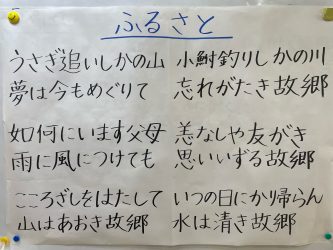 ふるさと
うさぎ追いしかの山 小鮒釣りしかの川
夢は今もめぐりて 忘れがたき故郷
如何にいます父母 恙なしや友がき
雨に風につけても 思いいずる故郷
こころざしをはたして いつの日にか帰らん
山はあおき故郷 水は清き故郷